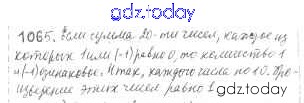 gdz.today
1065. Если сумма 20-ти чисел, каждое из
которых 1 или (-1) равно 0, то количество 1
и (-1) одинаковое. Итак, каждого числа по 10. Про-
изведение этих чисел равно 1
gdz.today